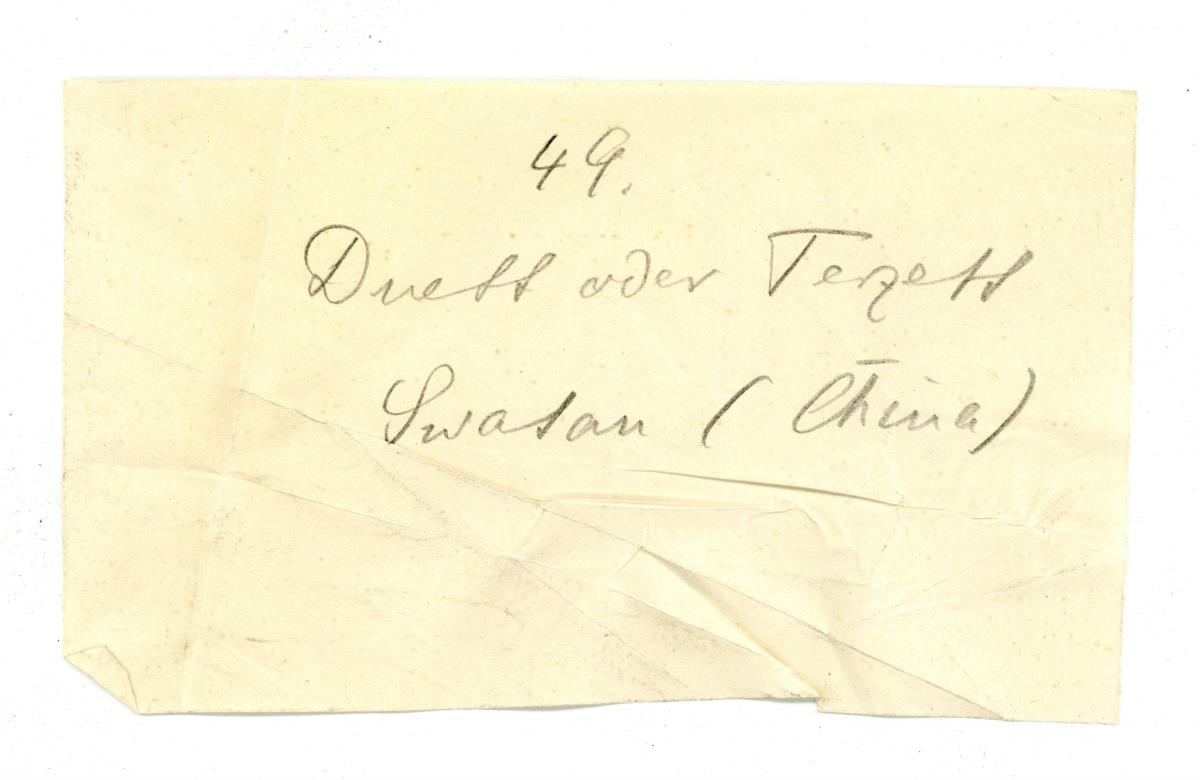 49.
Duett oder Terzett
Swatau (China)